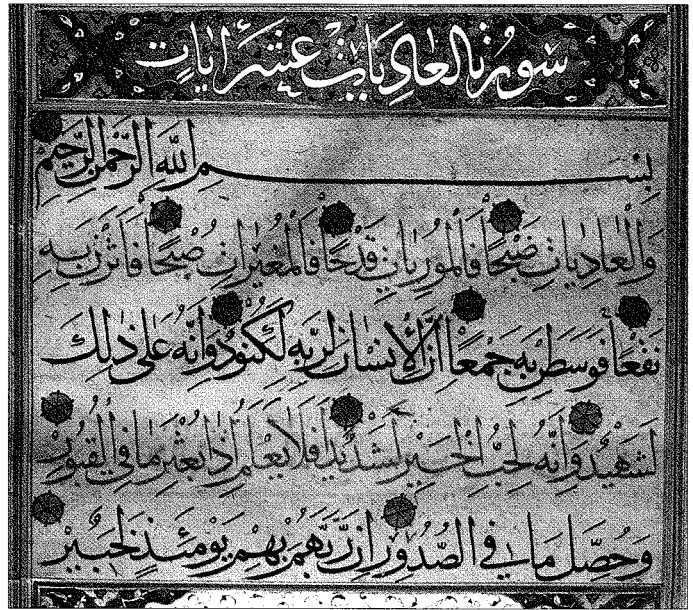 سورة العاديات عشر آيات
بسم الله الرحمن الرحيم
والعاديات ضبحا فالموريات قدحا فالمغيرات صبحا فأثرن به
نقعا فوسطن به جمعا إن الإنسان لربه لكنود وإنه على ذلك
لشهيد وإنه لحب الخير لشديد أفلا يعلم إذا بعثر ما في القبور
وحصل ما في الصدور إن ربهم بهم يومئذ لخبير